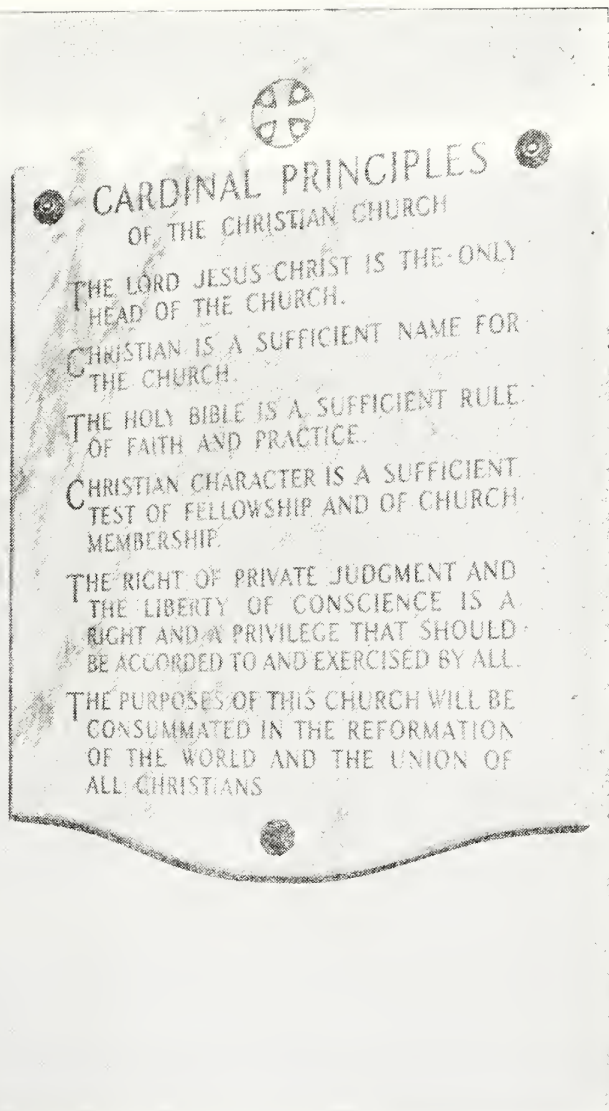 CARDINAL PRINCIPLES
OF THE CHRISTIAN CHURCH
THE LORD JESUS CHRIST IS THE ONLY
HEAD OF THE CHURCH.
CHRISTIAN IS A SUFFICIENT NAME FOR
THE CHURCH.
THE HOLY BIBLE IS A SUFFICIENT RULE
OF FAITH AND PRACTICE.
CHRISTIAN CHARACTER IS A SUFFICIENT
TEST OF FELLOWSHIP AND OF CHURCH
MEMBERSHIP.
THE RIGHT OF PRIVATE JUDGMENT AND
THE LIBERTY OF CONSCIENCE IS A
RIGHT AND A PRIVILEGE THAT SHOULD
BE ACCORDED TO AND EXERCISED BY ALL.
THE PURPOSES OF THIS CHURCH WILL BE
CONSUMMATED IN THE REFORMATION
OF THE WORLD AND THE UNION OF
ALL CHRISTIANS